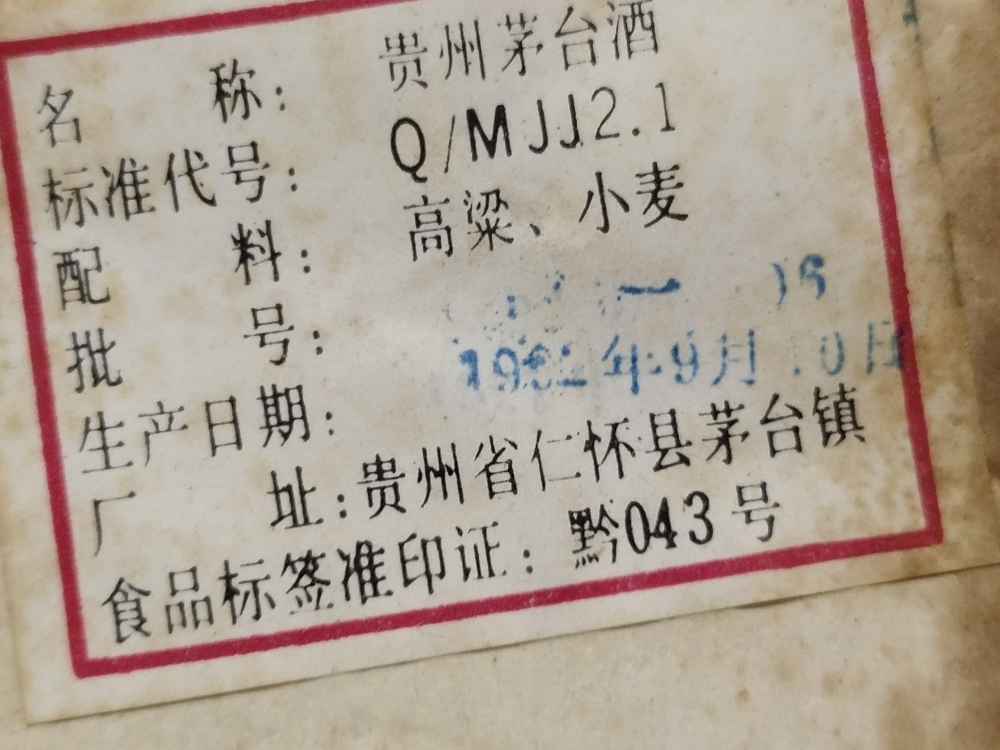 名 称: 贵州茅台酒
标准代号: Q/MJJ2.1
配 料: 高粱、小麦
批 号:
生产日期: 年9月
厂 址:贵州省仁怀县茅台镇
食品标签准印证: 黔043号